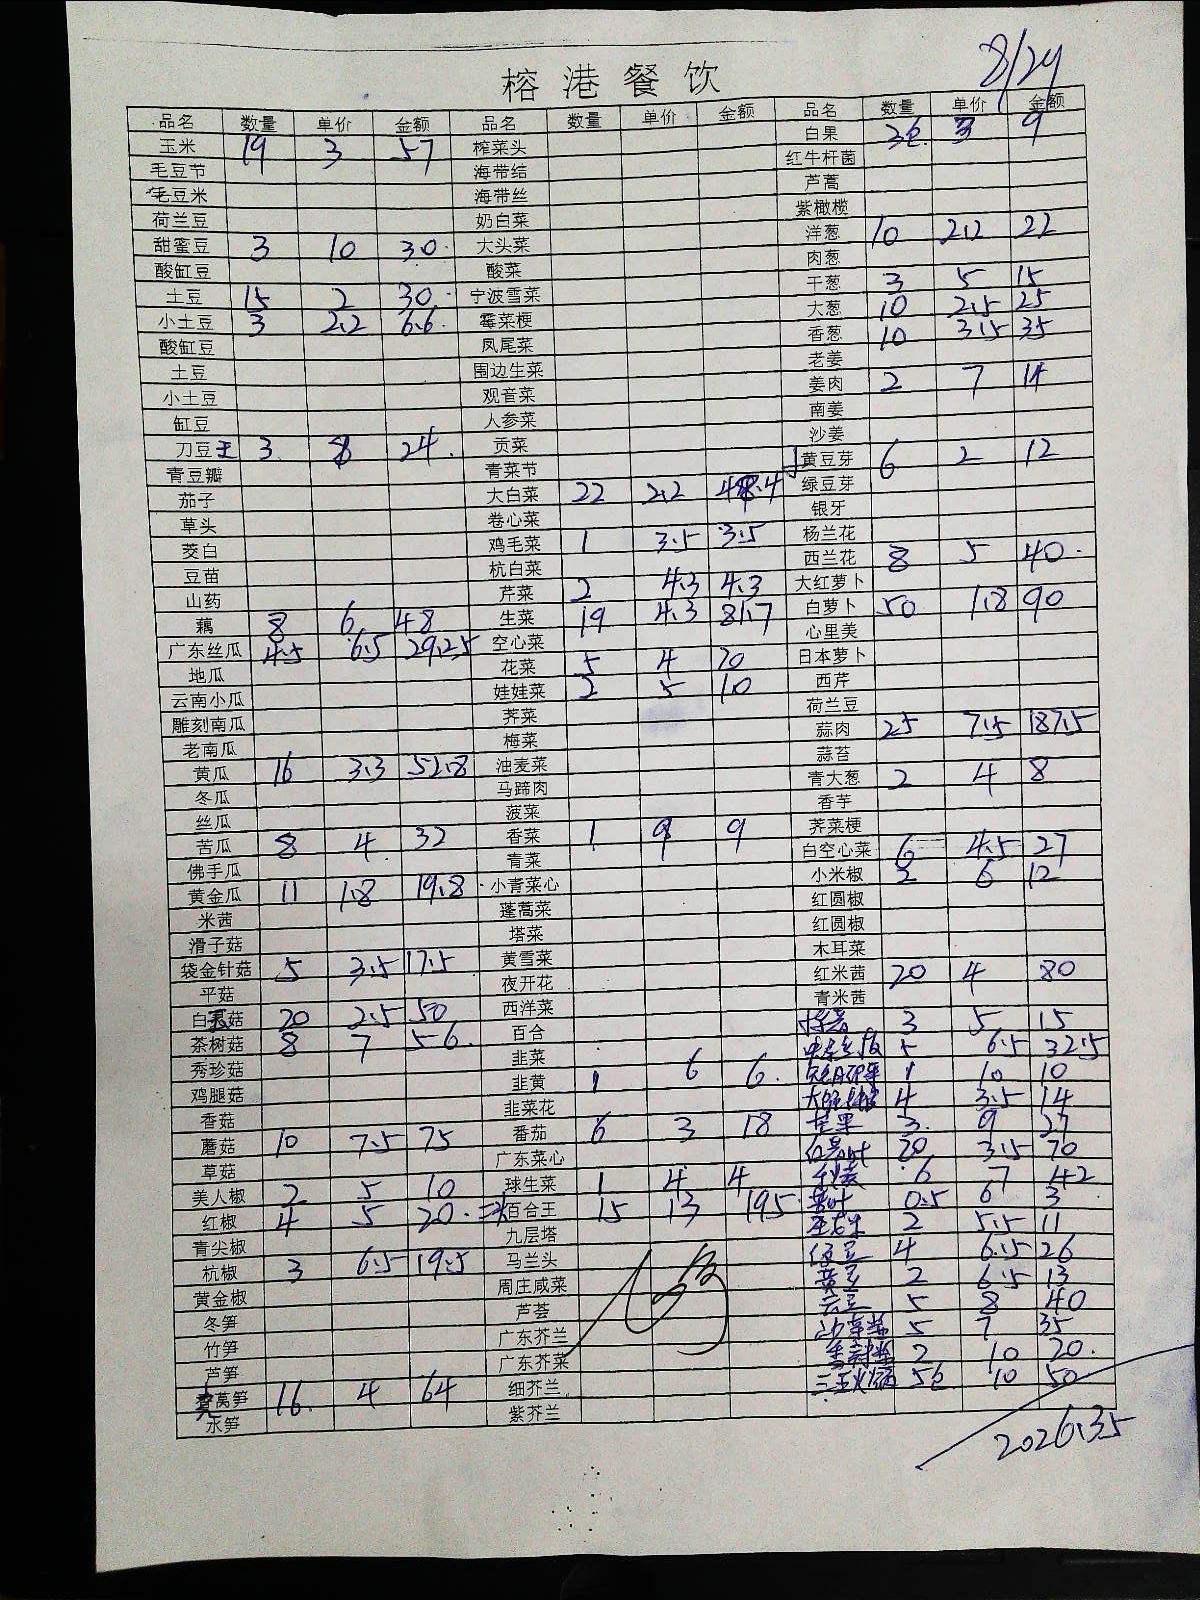 8/24
榕港餐饮
品名 数量 单价 金额 品名 数量 单价 金额 品名 数量 单价 金额
玉米 19 3 57 榨菜头 白果 3包 3 9
毛豆节 海带结 红牛杆菌
毛豆米 海带丝 芦蒿
荷兰豆 奶白菜 紫橄榄
甜蜜豆 3 10 30 大头菜 洋葱 10 2.2 22
酸缸豆 酸菜 肉葱
土豆 15 2 30 宁波雪菜 干葱 3 5 15
小土豆 3 2.2 6.6 霉菜梗 大葱 10 2.5 25
酸缸豆 凤尾菜 香葱 10 3.5 35
土豆 围边生菜 老姜
小土豆 观音菜 姜肉 2 7 14
缸豆 人参菜 南姜
刀豆王 3 8 24 贡菜 沙姜
青豆瓣 青菜节 黄豆芽 6 2 12
茄子 大白菜 22 2.2 48.4 绿豆芽
草头 卷心菜 银牙
茭白 鸡毛菜 1 3.5 3.5 杨兰花
豆苗 杭白菜 西兰花 8 5 40
山药 芹菜 2 4.3 4.3 大红萝卜
藕 8 6 48 生菜 19 4.3 81.7 白萝卜 50 1.8 90
广东丝瓜 4.5 6.5 29.25 空心菜 心里美
地瓜 花菜 5 4 20 日本萝卜
云南小瓜 娃娃菜 2 5 10 西芹
雕刻南瓜 荠菜 荷兰豆
老南瓜 梅菜 蒜肉 25 7.5 187.5
黄瓜 16 3.3 52.8 油麦菜 蒜苔
冬瓜 马蹄肉 青大葱 2 4 8
丝瓜 菠菜 香芋
苦瓜 8 4 32 香菜 1 9 9 荠菜梗
佛手瓜 青菜 白空心菜 6 4.5 27
黄金瓜 11 1.8 19.8 小青菜心 小米椒 2 6 12
米茜 蓬蒿菜 红圆椒
滑子菇 塔菜 红圆椒
袋金针菇 5 3.5 17.5 黄雪菜 木耳菜
平菇 夜开花 红米茜 20 4 80
白菇 20 2.5 50 西洋菜 青米茜
茶树菇 8 7 56 百合 3 5 15
秀珍菇 韭菜 5 6.5 32.5
鸡腿菇 韭黄 1 6 6 1 10 10
香菇 韭菜花 4 3.5 14
蘑菇 10 7.5 75 番茄 6 3 18 芒果 3 9 27
草菇 广东菜心 20 3.5 70
美人椒 2 5 10 球生菜 1 4 4 6 7 42
红椒 4 5 20 百合王 15 13 195 0.5 6 3
青尖椒 九层塔 2 5.5 11
杭椒 3 6.5 19.5 马兰头 绿豆 4 6.5 26
黄金椒 周庄咸菜 黄豆 2 6.5 13
冬笋 芦荟 云豆 5 8 40
竹笋 广东芥兰 5 7 35
芦笋 广东芥菜 2 10 20
莴笋 16 4 64 细芥兰 三五火锅 5包 10 50
水笋 紫芥兰
2026.35